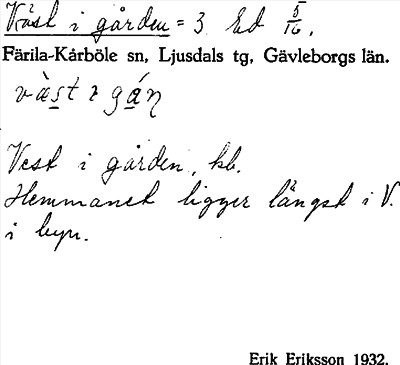 Väst i gården = 3 Ed 5/16.
Färila-Kårböle sn, Ljusdals tg, Gävleborgs län.
vàst ɩ gán
Vest i gården, kb.
Hemmanet ligger längst i V.
i byn.
Erik Eriksson 1932.